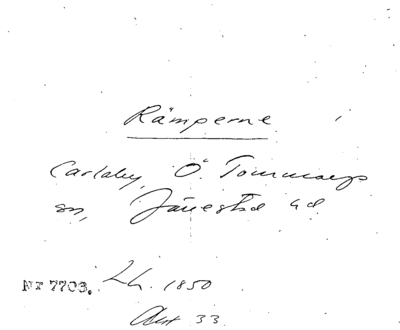 Rämperne
Carlaby, Ö. Tommarps
sn, Järrestad hd
Nr 7703. Lh. 1850
Akt 33